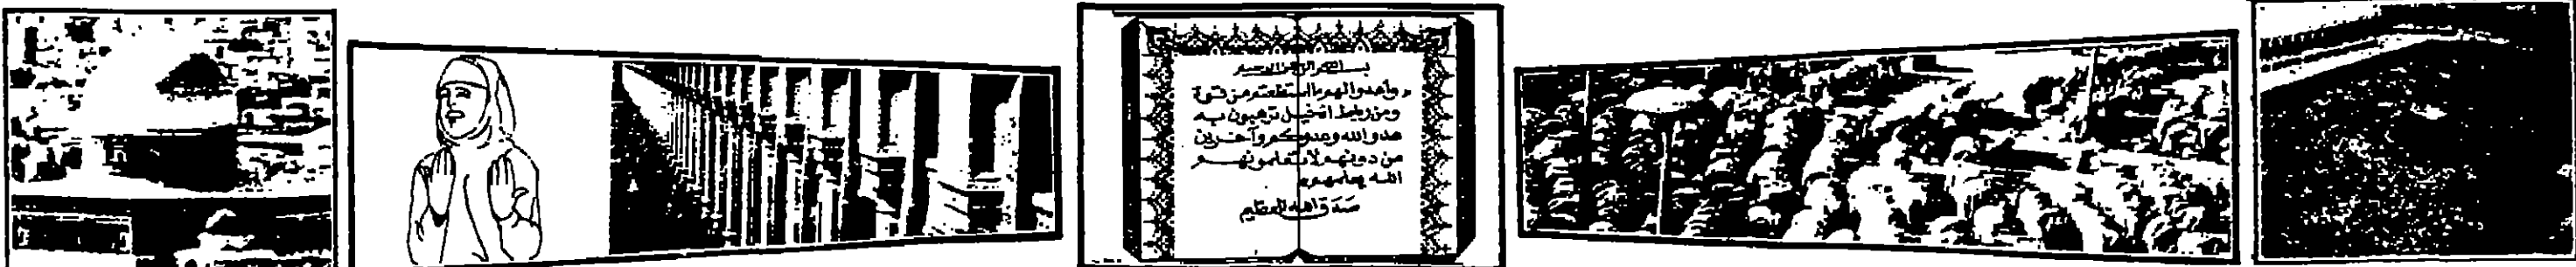 بسم الله الرحمن الرحيم
وأعدوا لهم ما استطعتم من قوة
ومن رباط الخيل ترهبون به
عدو الله وعدوكم وآخرين
من دونهم لا تعلمونهم
الله يعلمهم
صدق الله العظيم